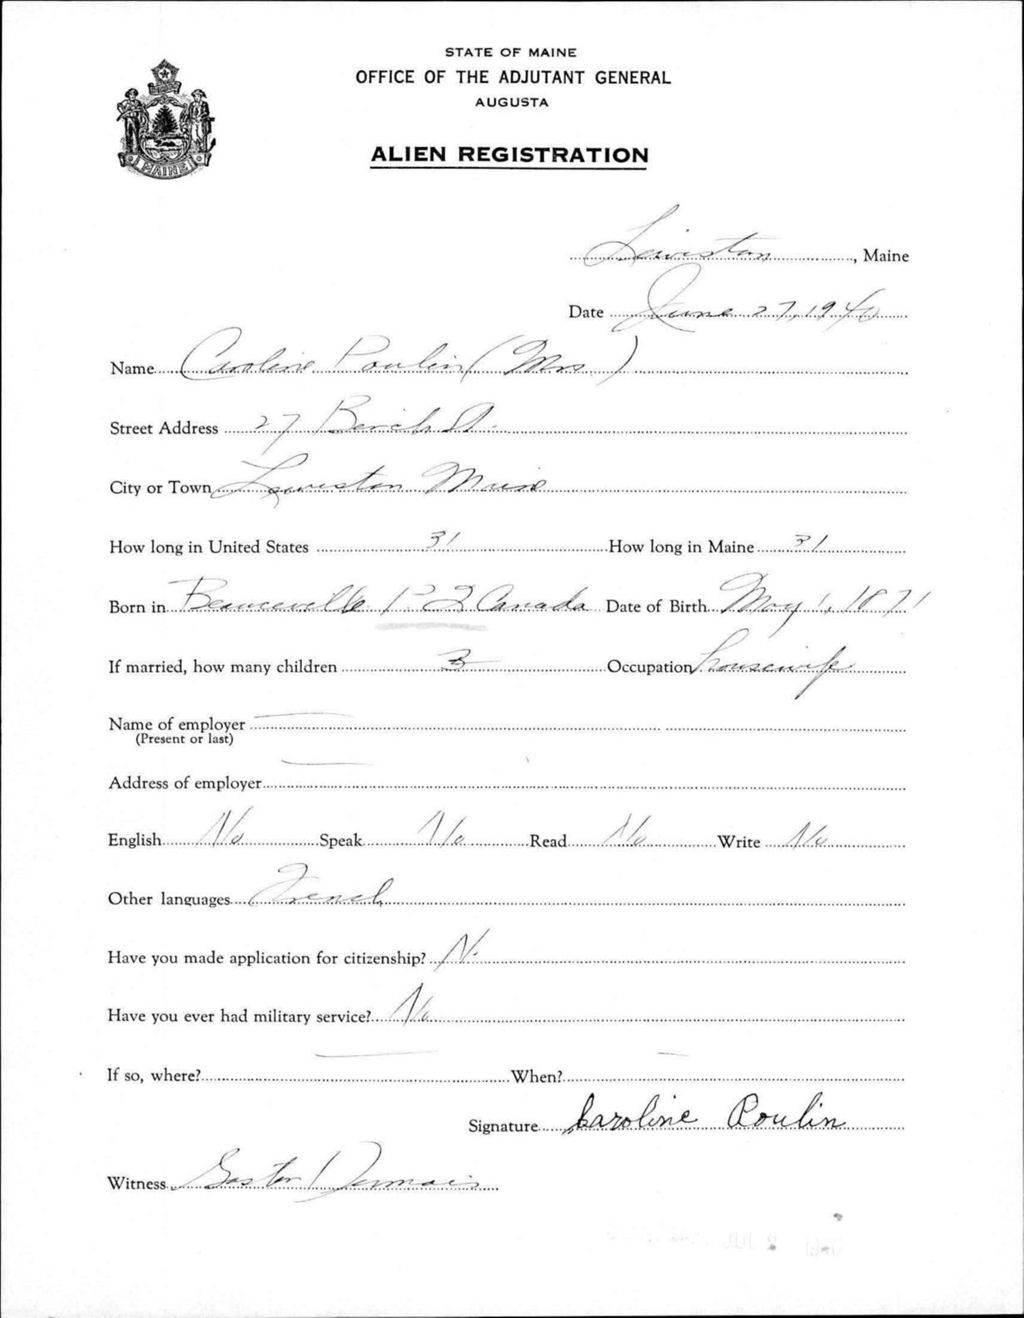 STATE OF MAINE
OFFICE OF THE ADJUTANT GENERAL
AUGUSTA
ALIEN REGISTRATION
MAINE
Lewiston, Maine
Date June 27, 1940
Name Caroline Poulin (Mrs.)
Street Address 27 Birch St.
City or Town Lewiston Maine
How long in United States 31 How long in Maine 31
Born in Beauceville P. Q Canada Date of Birth May 1, 1871
If married, how many children 3 Occupation housewife
Name of employer
(Present or last)
Address of employer
English No Speak No Read No Write No
Other languages French
Have you made application for citizenship? No
Have you ever had military service? No
If so, where? When?
Signature Caroline Poulin
Witness